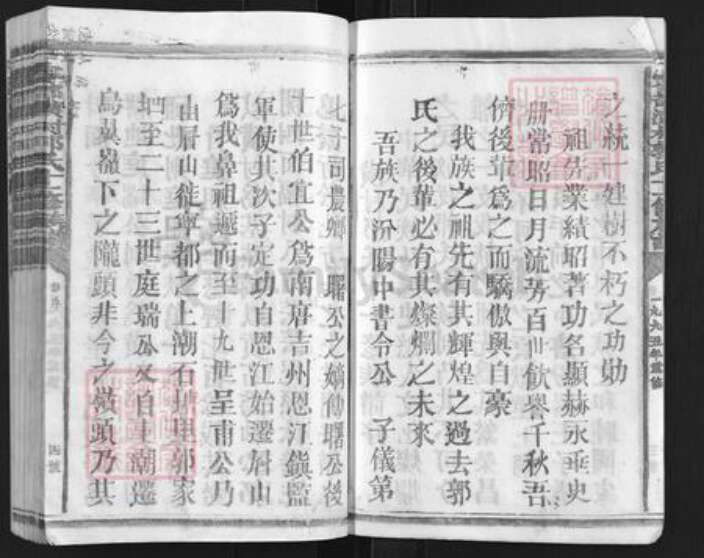 之統一建樹不朽之功勛
祖先業績昭著功名顯赫永垂史
册當昭日月流芳百卌飲譽千秋吾
儕後輩爲之而驕傲與自豪
我族之祖先有其輝煌之過去郭
氏之後輩必有其燦爛之未來
吾族乃汾陽中書令公 子儀第
七子司農卿 曙公之嫡傳曙公後
十世伯宜公爲南唐吉州恩江鎮監
軍使其次子定功自恩江始遷眉山
爲我鼻祖遞而至十九世呈甫公乃
由眉山徙寧都之上潮石
里郭家
至二十三世庭瑞公又自上潮遷
烏
嶺下之隴頭非今之嶺頭乃其
四號